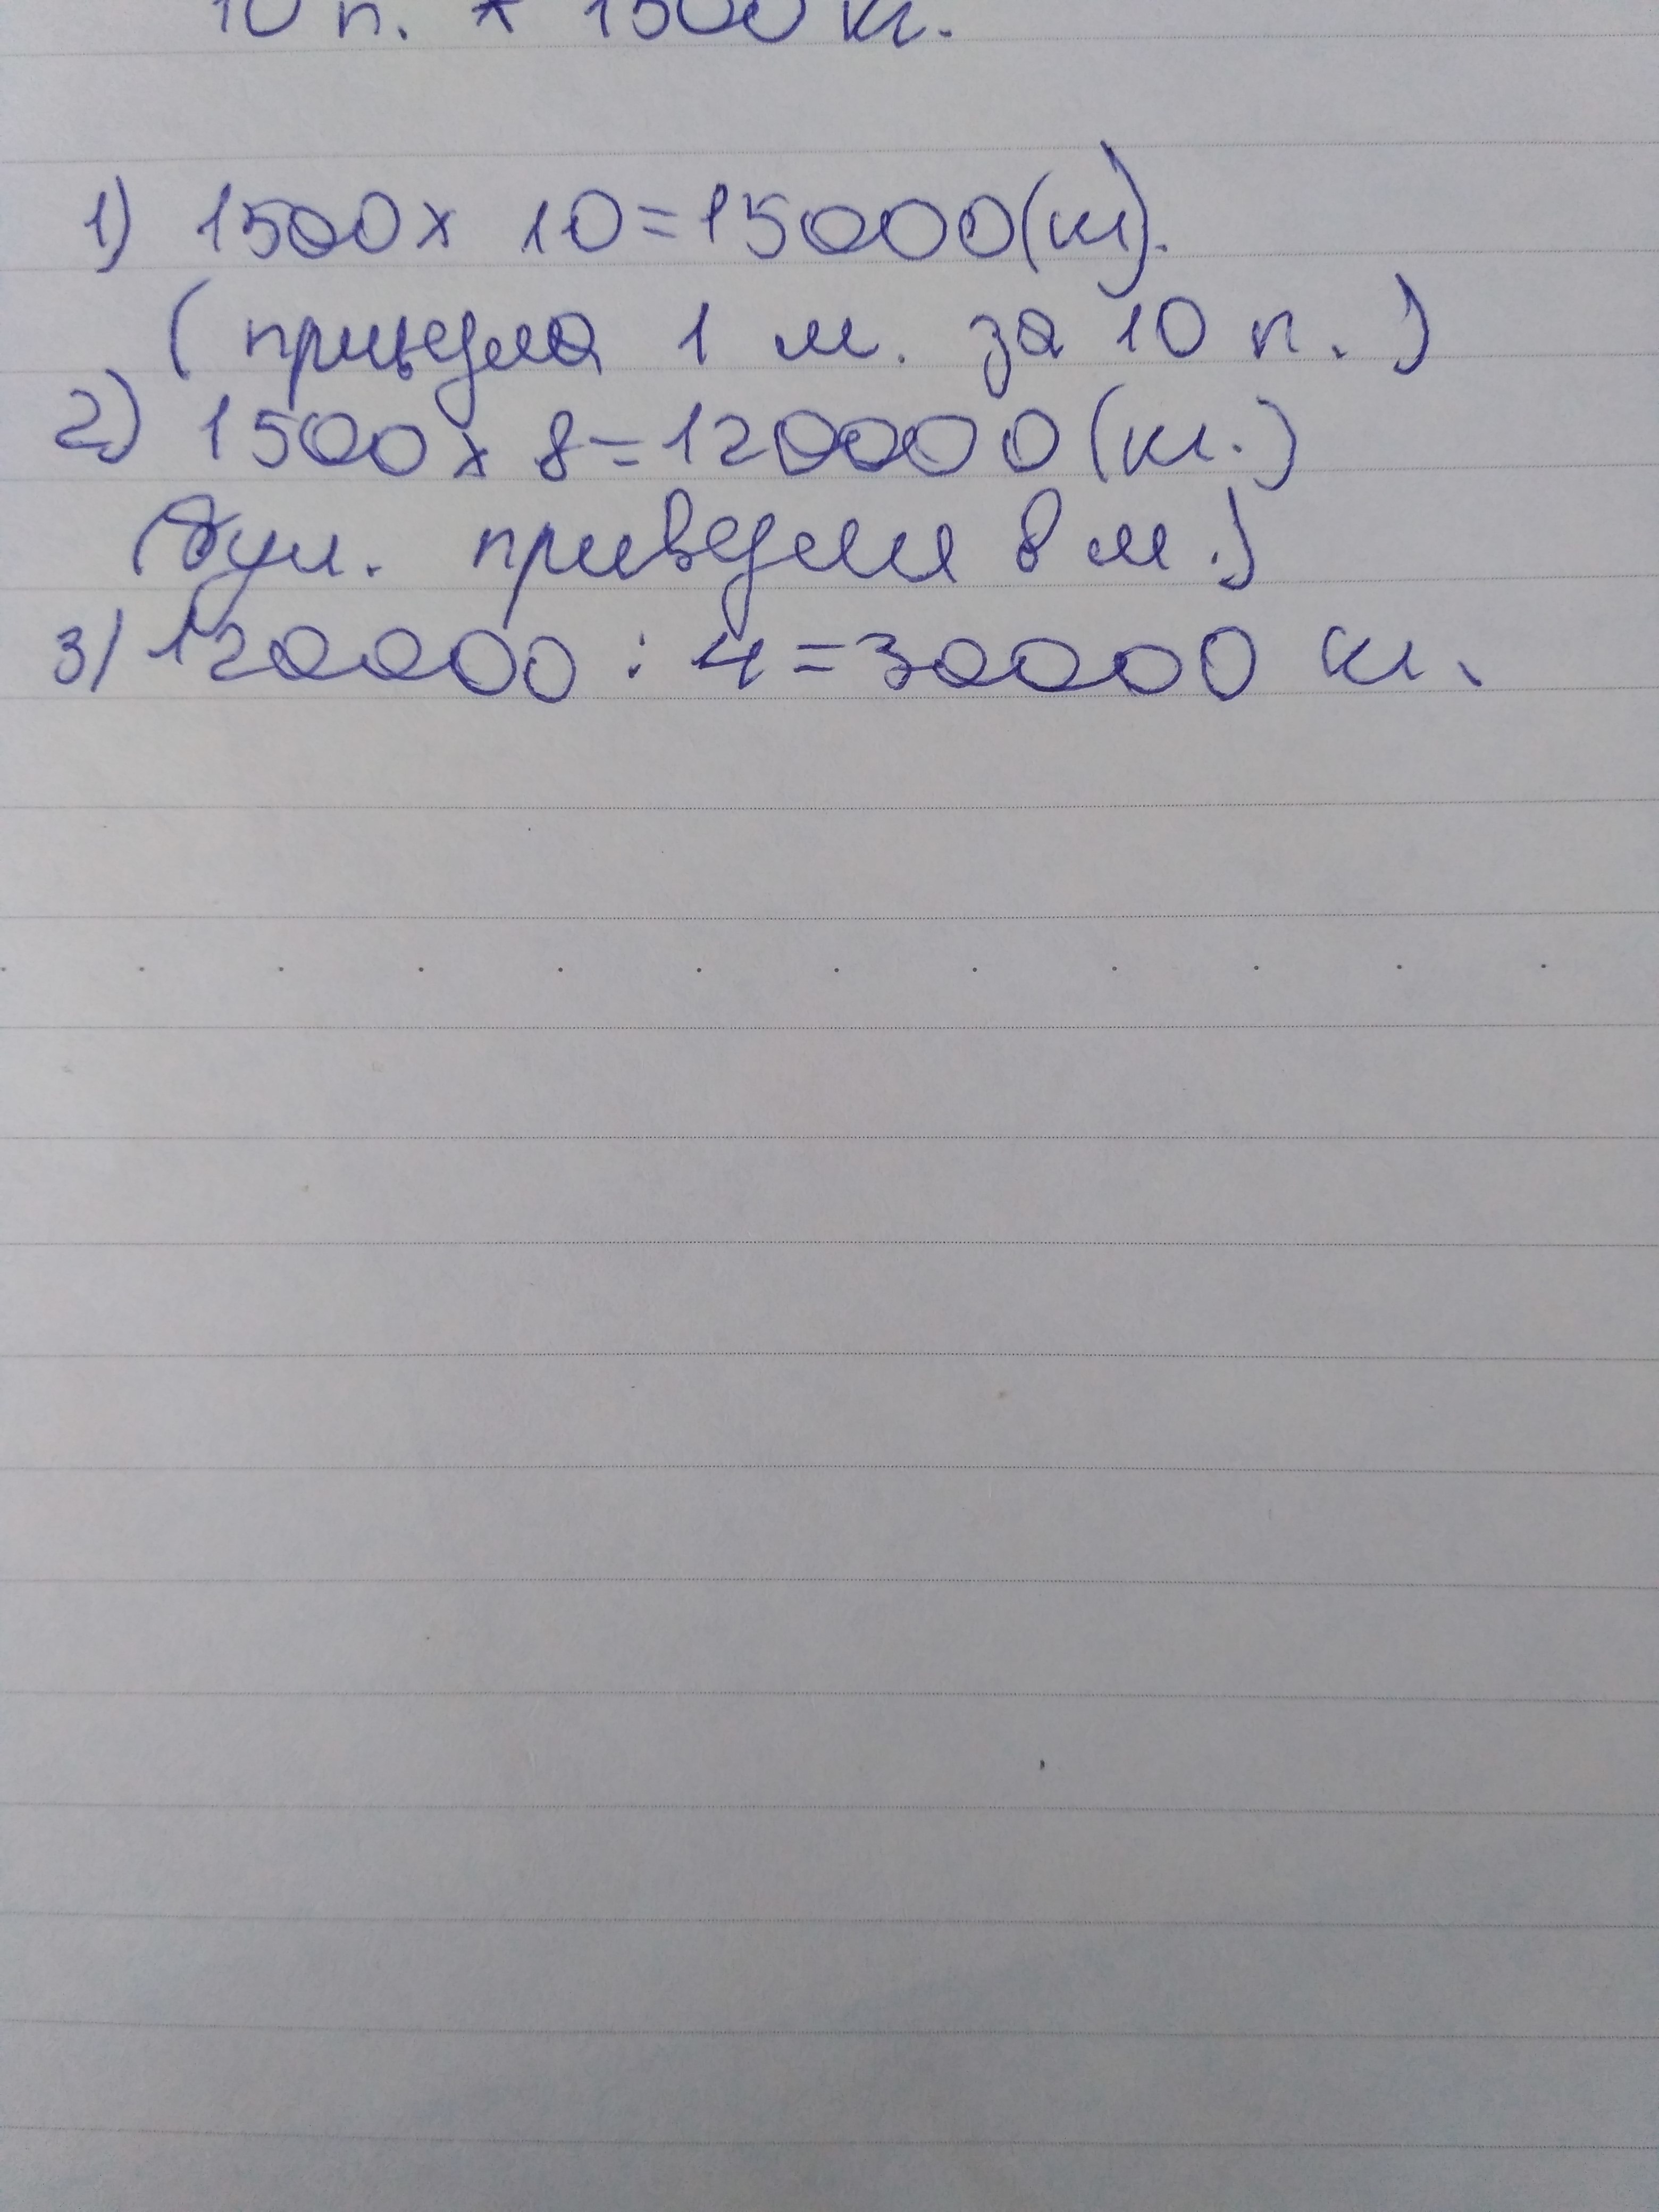 10 п. * 1500 кг.
1) 1500 x 10=15000(кг).
(привезла 1 м. за 10 п.)
2) 1500 x 8=120000(кг.)
(бул. привезли 8 м.)
3) 120000 : 4=30000 кг.